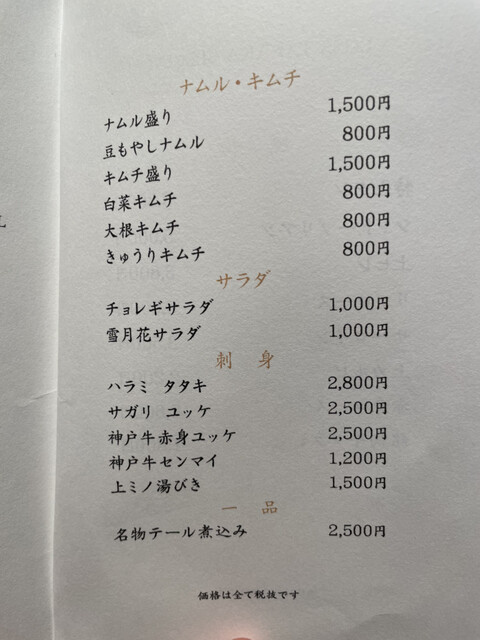 ナムル・キムチ
ナムル盛り 1,500円
豆もやしナムル 800円
キムチ盛り 1,500円
白菜キムチ 800円
大根キムチ 800円
きゅうりキムチ 800円
サラダ
チョレギサラダ 1,000円
雪月花サラダ 1,000円
刺 身
ハラミ タタキ 2,800円
サガリ ユッケ 2,500円
神戸牛赤身ユッケ 2,500円
神戸牛センマイ 1,200円
上ミノ湯びき 1,500円
一 品
名物テール煮込み 2,500円
価格は全て税抜です